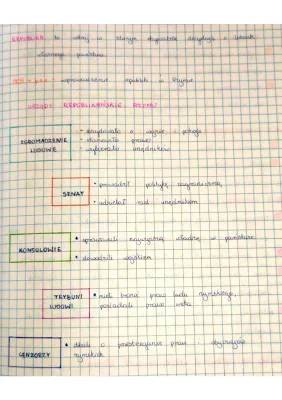 REPUBLIKA to ustrój w którym obywatele decydują o losach
własnego państwa
509 r. p.n.e. - wprowadzenie republiki w Rzymie
URZĘDY REPUBLIKAŃSKIE RZYMU
ZGROMADZENIE
LUDOWE
• decydowało o wojnie i pokoju
• stanowiło prawo
• wybierało urzędników
SENAT
• prowadził politykę zagraniczną
• nad urzędnikami
KONSULOWIE
• sprawowali najwyższą władzę w państwie
• dowodzili wojskiem
TRYBUNI
LUDOWI
• mieli bronić praw ludu rzymskiego,
posiadali prawo weta
CENZORZY
• dbali o przestrzeganie praw i obyczajów
rzymskich